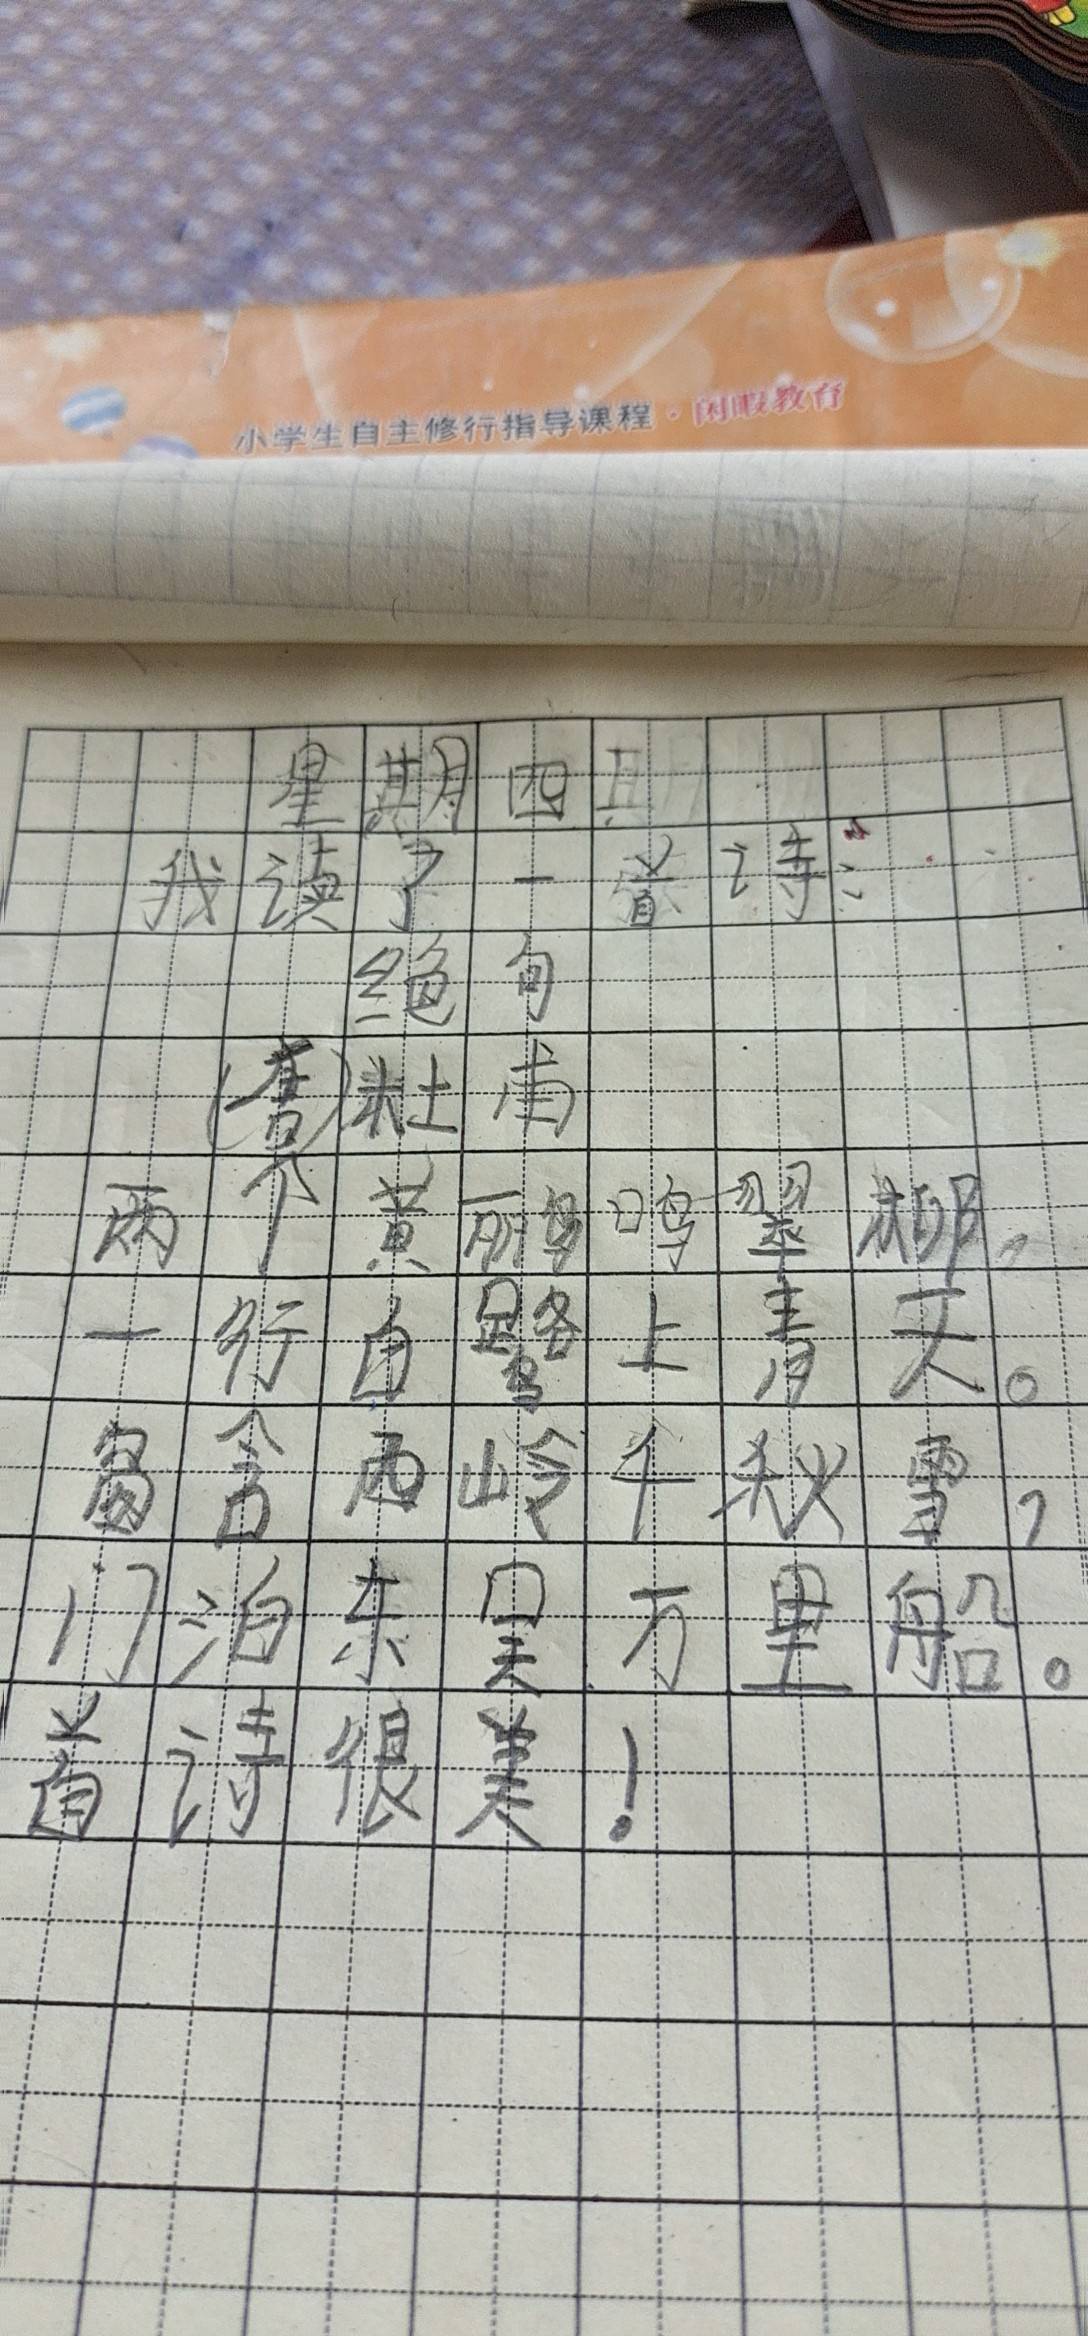 小学生自主修行指导课程·闲暇教育
星期四
我读了一首诗：
绝句
(唐)杜甫
两个黄鹂鸣翠柳，
一行白鹭上青天。
窗含西岭千秋雪，
门泊东吴万里船。
首诗很美！